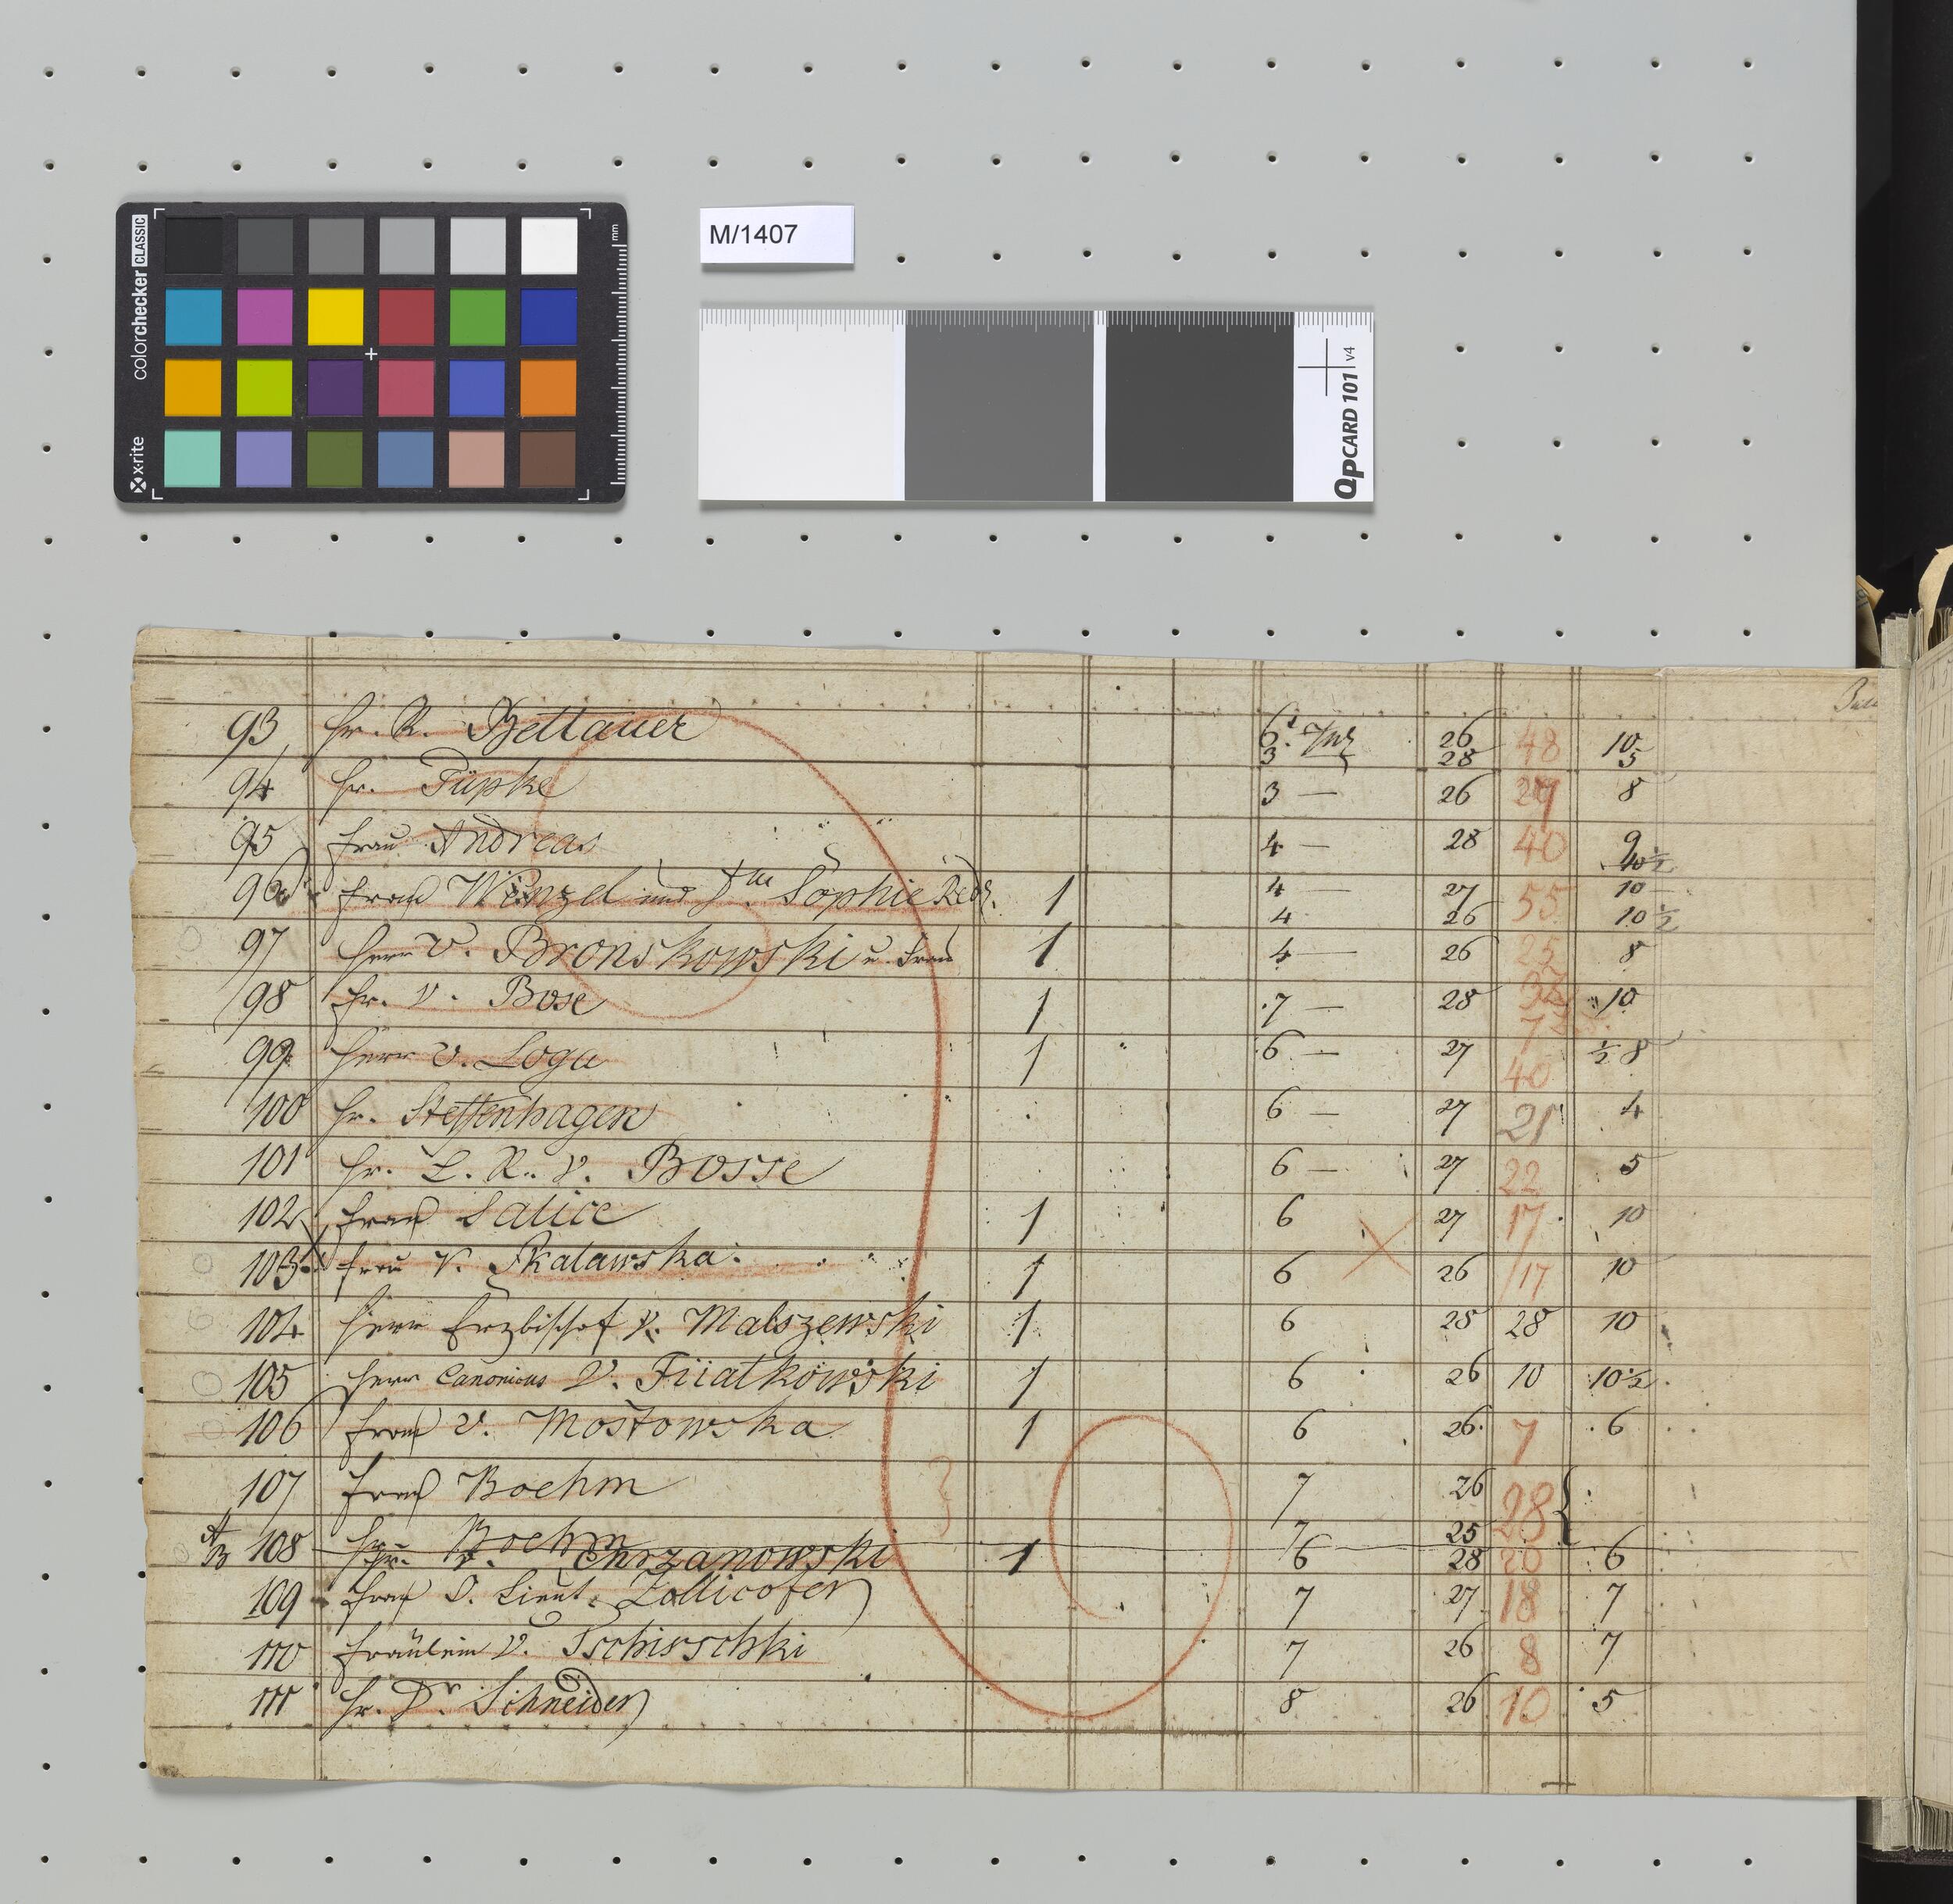 colorchecker CLASSIC
x-rite
mm
M/1407
QPCARD 101 v4
93 Hr. R. Bettauer 6. 26 48 10
3 28 5
94 Hr. Tüpke 3 — 26 29 8
95 Frau Andreas 4 — 28 40 9
10½
96 Frau Wenzel und Sophie 1 4 — 27 55 10
4 26 10½
97 Herr v. Bronskowski u. Frau 1 4 — 26 25 8
98 Hr. v. Bose 1 7 — 28 10
7
99 Herr v. Loga 1 6 — 27 40 ½ 8
100 Hr. Steffenhagen 6 — 27 21 4
101 Hr. L. R. v. Bosse 6 — 27 22 5
102 Frau Salice 1 6 27 17 10
103 Frau v. Skalawska 1 6 26 17 10
104 Herr Erzbischof v. Malszewski 1 6 28 28 10
105 Herr Canonicus v. Fiiatkowski 1 6 26 10 10½
106 Frau v. Mostowska 1 6 26 7 6
107 Frau Boehm 7 26 28
A Hr. Boehm 7 25
B 108 Hr. v. Chrzanowski 1 6 28 20 6
109 Frau O. Lieut. Zollicofer 7 27 18 7
110 Fräulein v. Tschirschki 7 26 8 7
111 Hr. Dr. Schneider 8 26 10 5